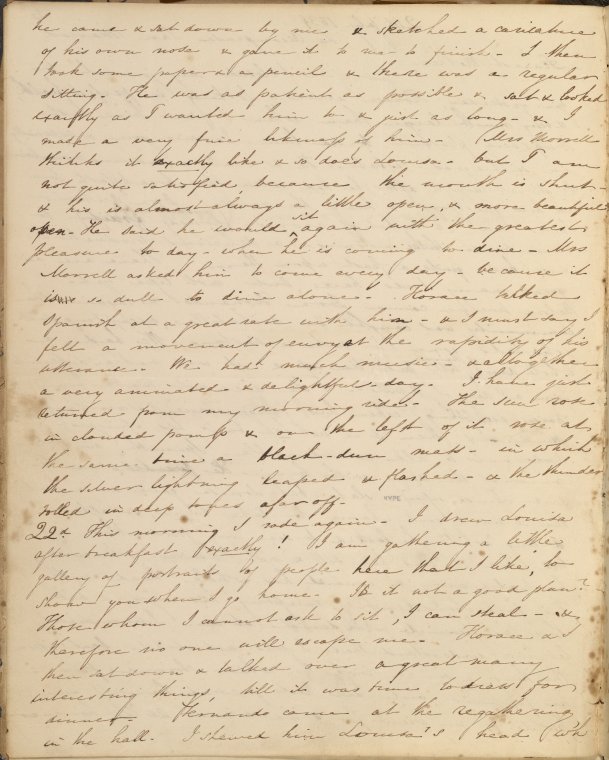 he came & sat down by me & sketched a caricature
of his own nose & gave it to me to finish - I then
took some paper & a pencil & there was a regular
sitting - He was as patient as possible & sat & looked
exactly as I wanted him to & just as long - & I
made a very fine likeness of him - (Mrs Morrell
thinks it exactly like & so does Louisa - but I am
not quite satisfied, because the mouth is shut -
& his is almost always a little open, & more beautiful
open - He said he would sit again with the greatest
pleasure to day - when he is coming to dine - Mrs
Morrell asked him to come every day - because it
is so dull to dine alone - Horace talked
Spanish at a great rate with him - & I must say I
felt a movement of envy at the rapidity of his
utterance. We had much music - & altogether
a very animated & delightful day. I have just
returned from my morning ride. The sun rose
in clouded pomp & on the left of it rose at
the same time a black-dun mass - in which
the silver lightning leaped & flashed - & the thunder
rolled in deep tones afar off -
22d This morning I rode again - I drew Louisa
after breakfast exactly! I am gathering a little
gallery of portraits of people here that I like, to
show you when I go home. Is it not a good plan?
Those whom I cannot ask to sit, I can steal - &
therefore no one will escape me. Horace & I
then sat down & talked over a great many
interesting things, till it was time to dress for
dinner - Fernando came at the regathering
in the hall. I shewed him Louisa's head (wh